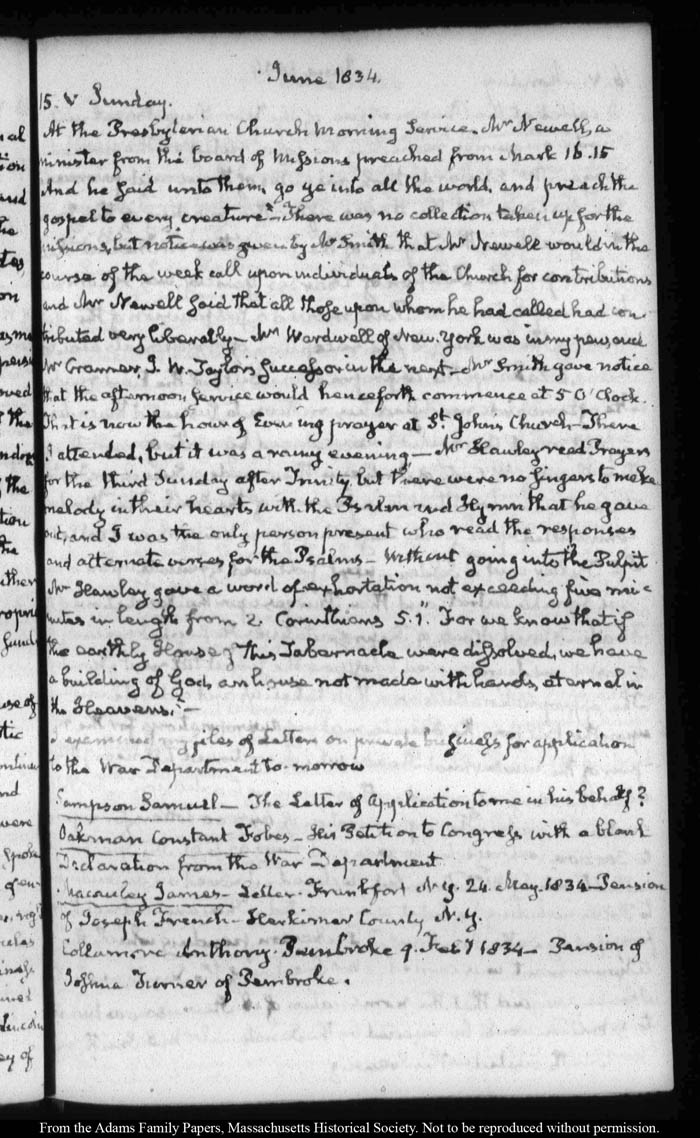 June 1834.
15. V Sunday.
At the Presbyterian Church Morning Service. Mr Newell, a
minister from the board of Missions preached from Mark 16.15
And he said unto them, go ye into all the world, and preach the
gospel to every creature – There was no collection taken up for the
missions, but notice was given by Mr Smith that Mr Newell would in the
course of the week call upon individuals of the Church for contributions
and Mr Newell said that all those upon whom he had called had con-
tributed very liberally – Mr Wardwell of New-York was in my pew, and
Mr Cramer, J. W. Taylor's successor in the next – Mr Smith gave notice
that the afternoon Service would henceforth commence at 5 O'Clock.
That is now the hour of Evening prayer at St. Johns Church – There
I attended, but it was a rainy evening – Mr Hawley read Prayers
for the third Sunday after Trinity, but there were no singers to make
melody in their hearts with the Psalm and Hymn that he gave
out, and I was the only person present who read the responses
and alternate verses for the Psalms – Without going into the Pulpit
Mr Hawley gave a word of exhortation not exceeding five mi-
nutes in length from 2. Corinthians 5.1. "For we know that if
the earthly House of this Tabernacle were dissolved, we have
a building of God, an house not made with hands, eternal in
the Heavens." –
I examined my files of Letters on private business for application
to the War Department to-morrow
Sampson Samuel – The Letter of application to me in his behalf?
Oakman Constant Fobes – His Petition to Congress with a blank
Declaration from the War Department
Macauley James – Letter. Frankfort N.Y. 24. May. 1834 – Pension
of Joseph French – Herkimer County, N.Y.
Collamore Anthony. Pembroke 9. Feby 1834 – Pension of
Joshua Turner of Pembroke.
From the Adams Family Papers, Massachusetts Historical Society. Not to be reproduced without permission.